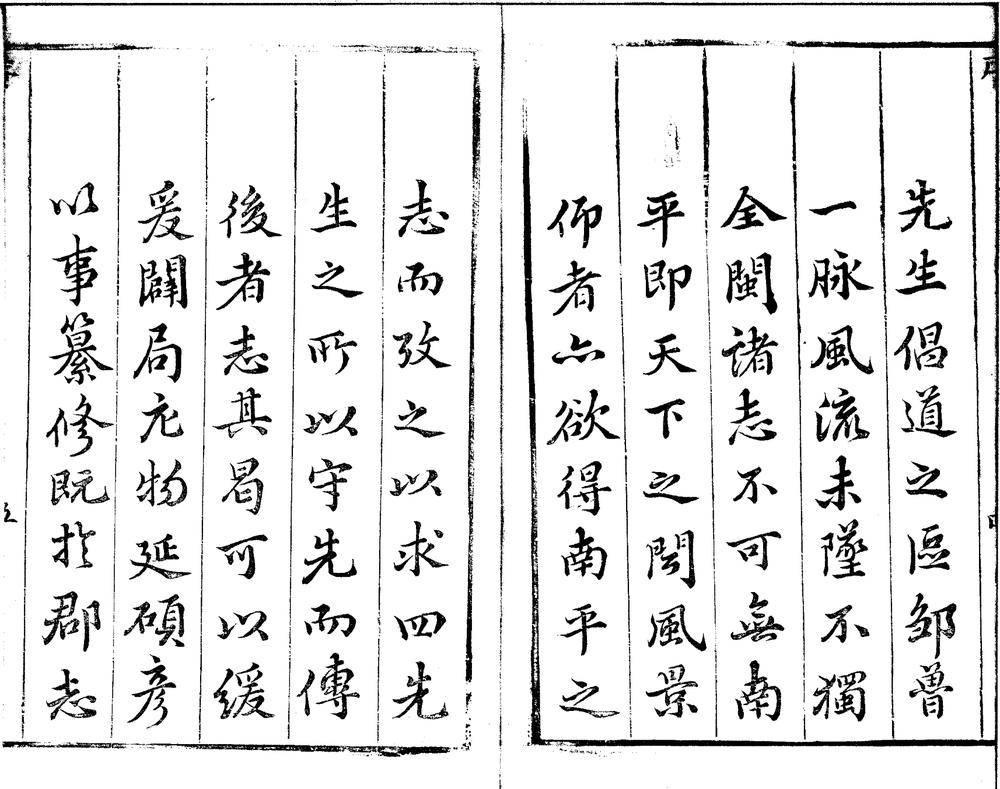 先生倡道之區鄒魯
一脉風流未墜不獨
全閩諸志不可無南
平即天下之聞風景
仰者亦欲得南平之
志而攷之以求四先
生之所以守先而傳
後者志其曷可以緩
爰闢局庀物延碩彥
以事纂修既於郡志